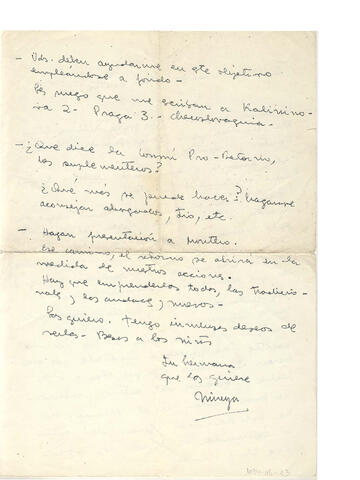 - Uds. deben ayudarme en este objetivo
empleándose a fondo -
Les ruego que me escriban a Kalinino-
va 2 - Praga 3. - Checoslovaquia -
- ¿Qué dice la Comité Pro-Retorno,
los suplementeros?
¿Qué más se puede hacer? háganse
aconsejar abogados, tío, etc.
- Hagan presentación a Montero.
Ese camino, el retorno se abrirá en la
medida de nuestras acciones.
Hay que emprenderlas todas, las tradicio-
nales y las audaces y nuevas -
Los quiero. Tengo inmensos deseos de
verlos - Besos a los niños
Su hermana
que los quiere
Mireya